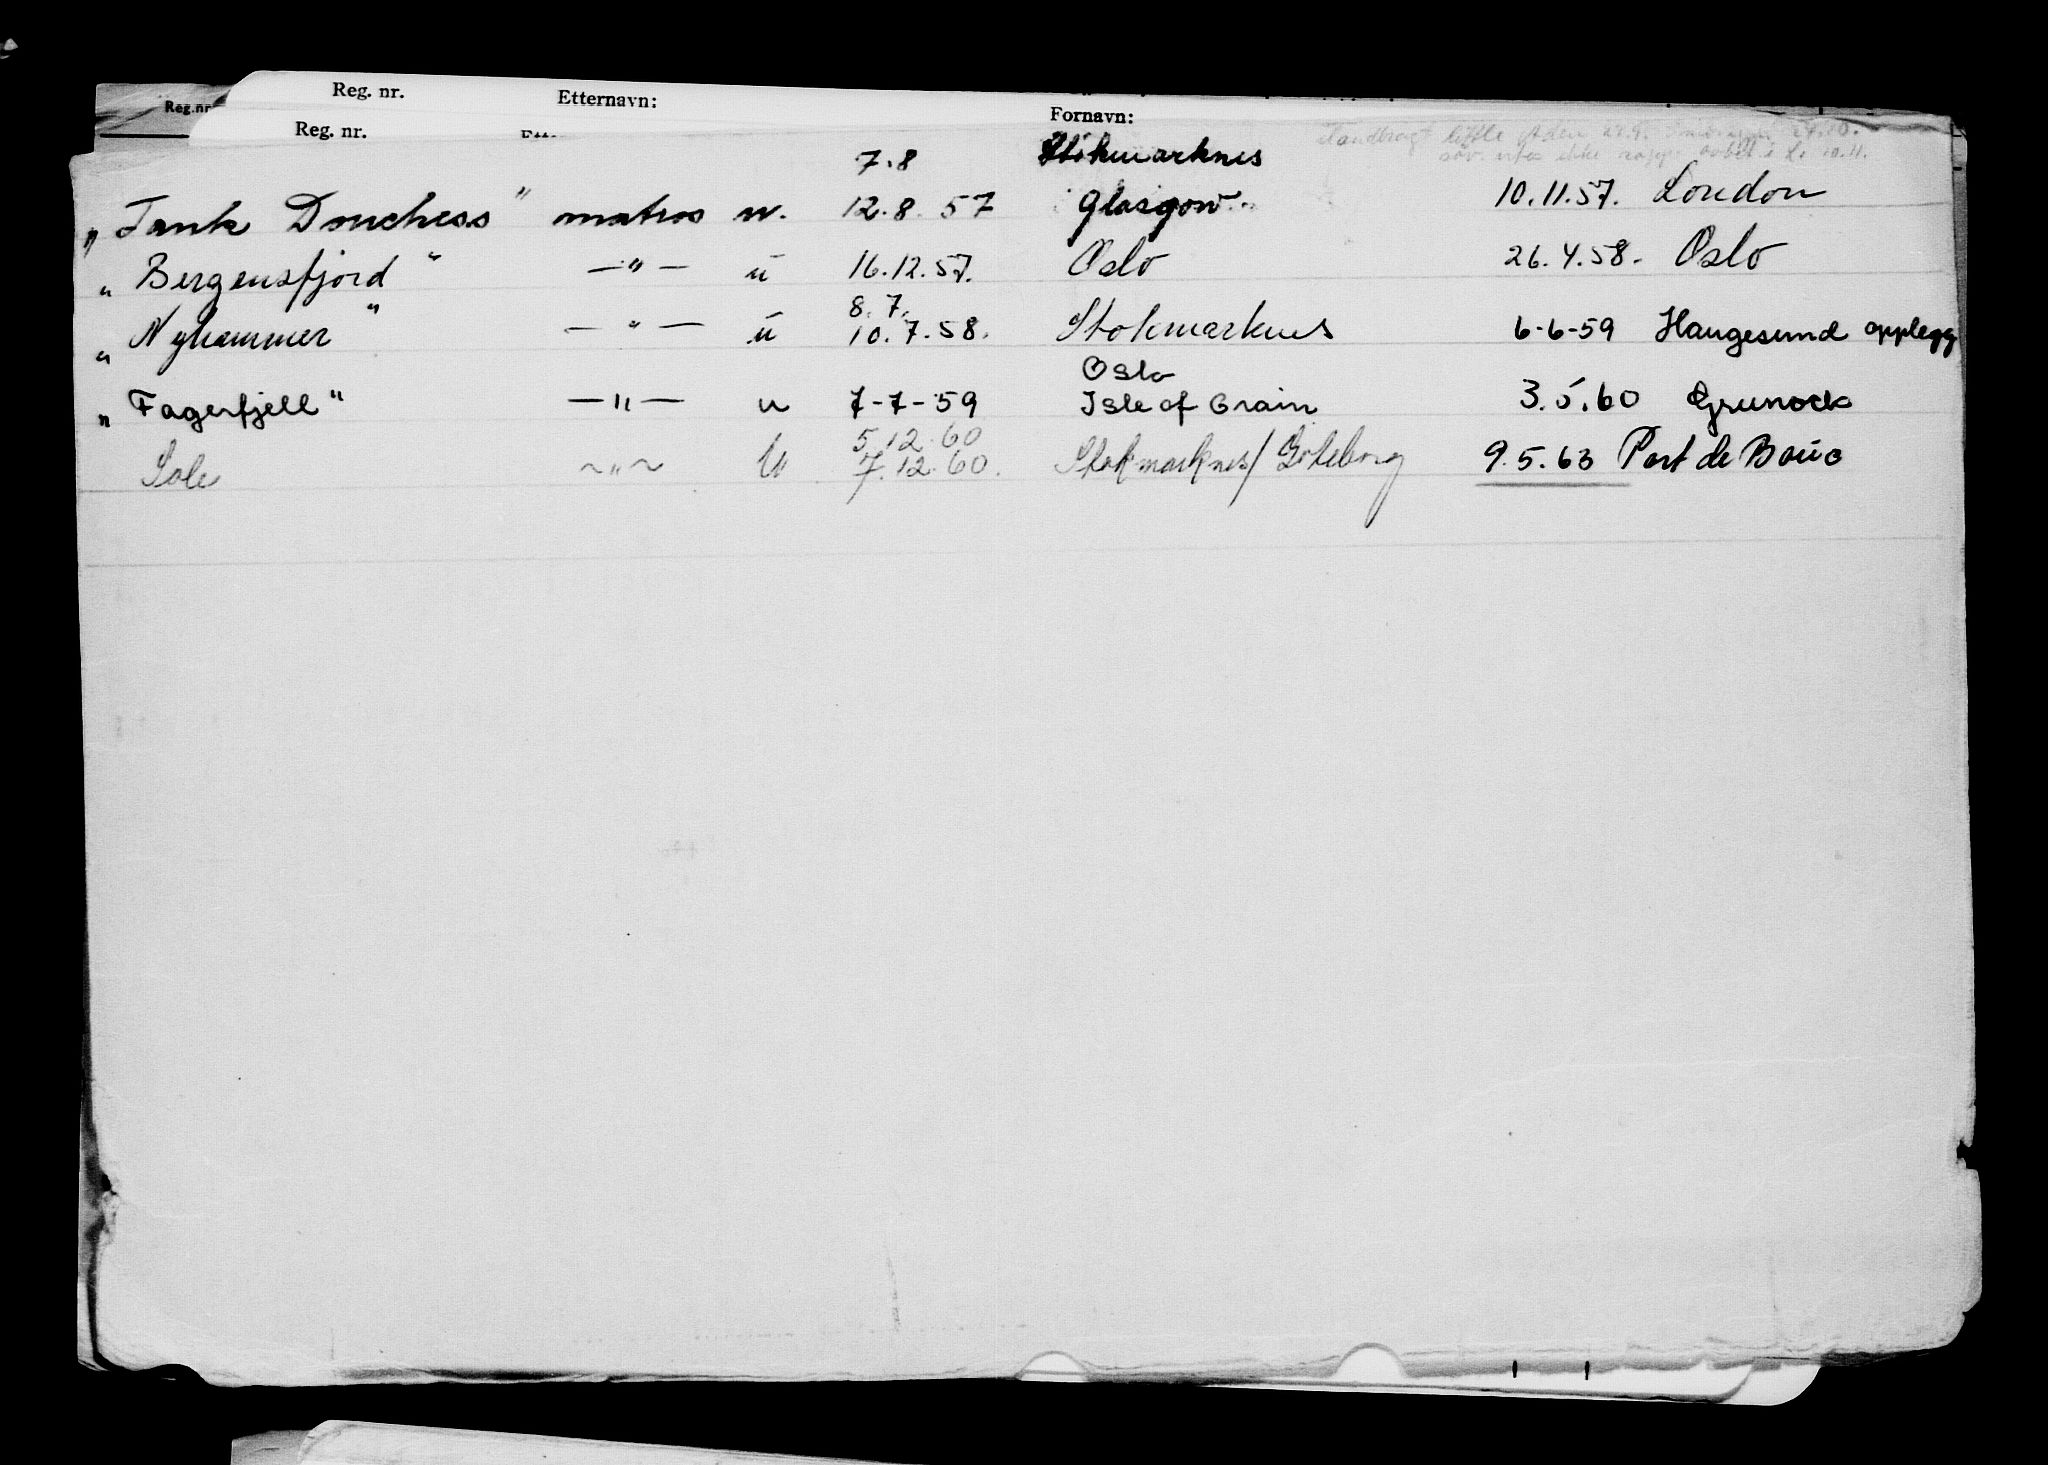 Reg. nr. Etternavn: Fornavn:
Reg.nr
Reg. nr.
7.8 Stokmarknes
"Tank Douchess" matros u. 12.8.57 Glasgow 10.11.57. London
"Bergensfjord" —"— u 16.12.57. Oslo 26.4.58. Oslo
8.7.
"Nyhammer" —"— u 10.7.58. Stokmarknes 6-6-59 Haugesund opplegg
Oslo
"Fagerfjell" —"— u 7-7-59 Isle of Grain 3.5.60 Grunock
5.12.60
Sole ~"~ u 7.12.60. Stokmarknes/Göteborg 9.5.63 Port de Bouc